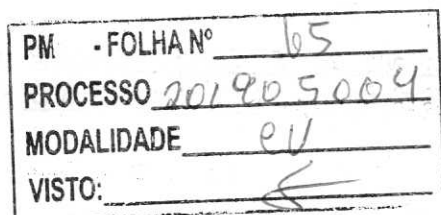 PM - FOLHA Nº 65
PROCESSO 201905004
MODALIDADE
VISTO: